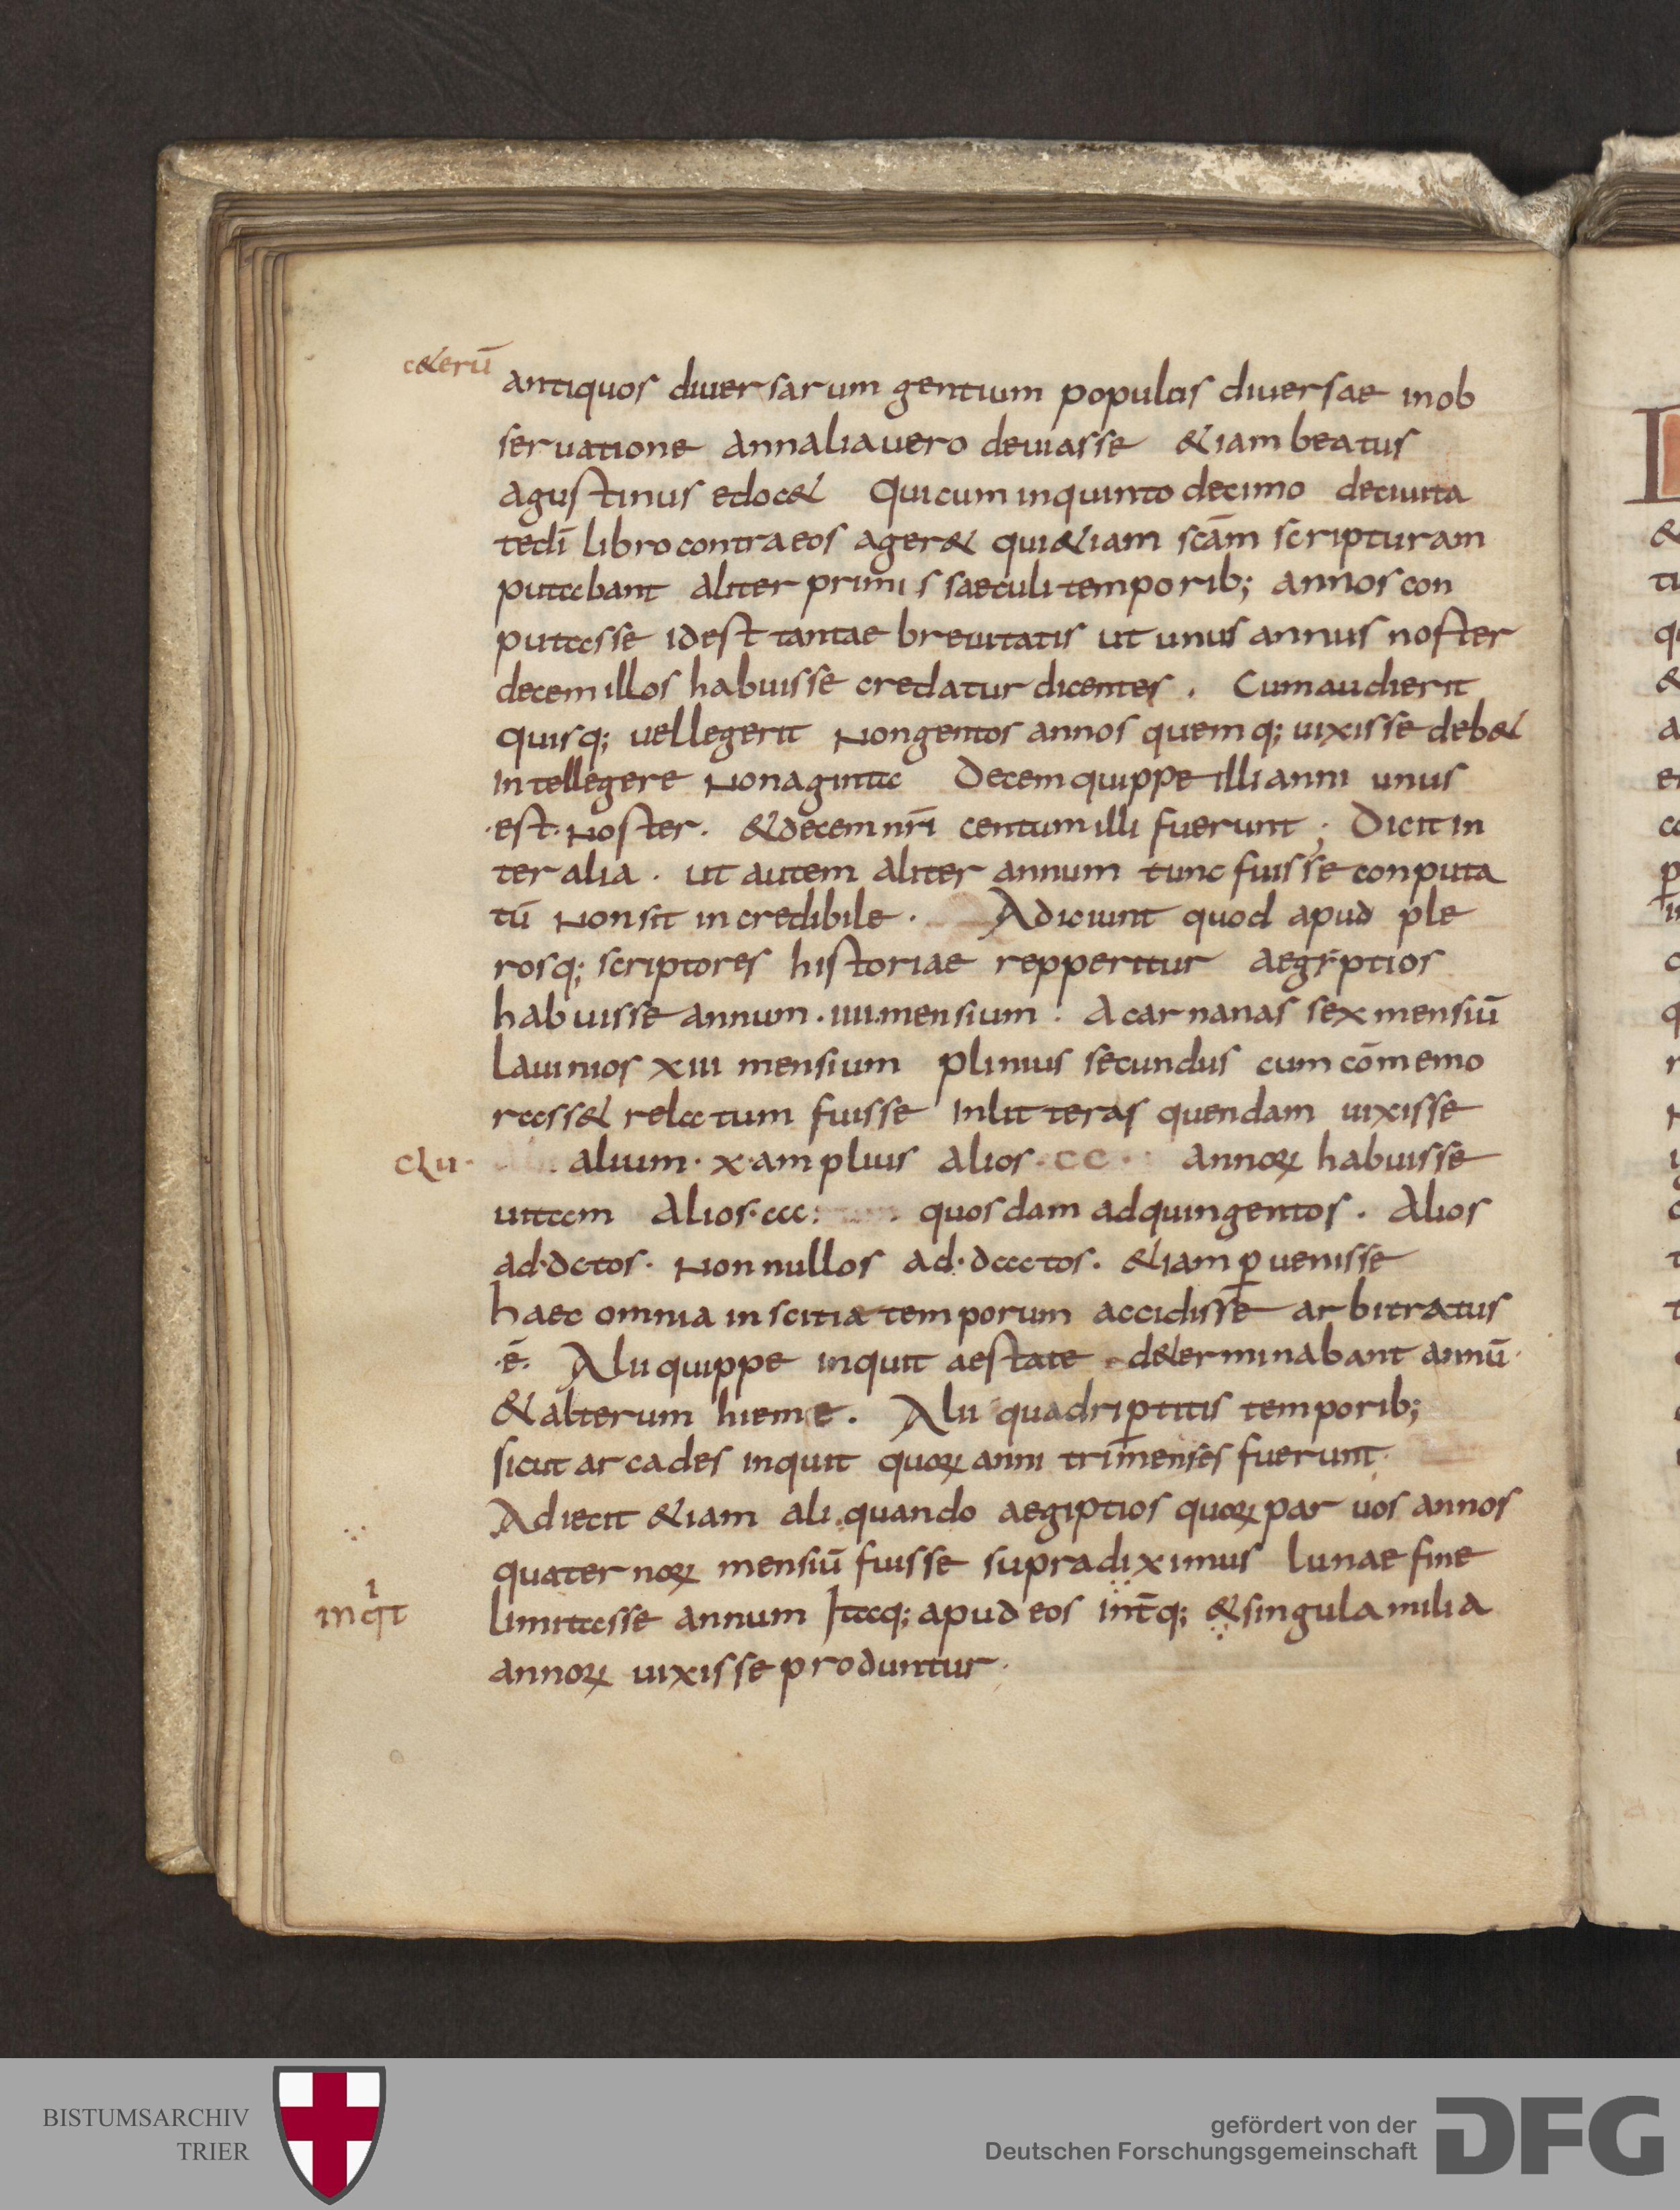 c&erū
antiquos diuersarum gentium populos diuersae inob
seruatione annalia uero deuiasse &iam beatus
agustinus edoc& Qui cum in quinto decimo deciuita
tedī libro contra eos ager& qui &iam scām scripturam
putabant aliter primis saeculi temporib; annos con
putasse idest tantae breuitatis ut unus annus noster
decem illos habuisse credatur dicentes . Cum audierit
quisq; uel legerit Nongentos annos quemq; uixisse deb&
intellegere Nonaginta Decem quippe illi anni unus
·est· Noster . & decem nr̄i centum illi fuerunt ; Dicit in
ter alia . ut autem aliter annum tunc fuisse conputa
tū Non sit incredibile . Adiciunt quod apud ple
rosq; scriptores historiae repperitur aegẏptios
habuisse annum . iiii mensium . Acarnanas sex mensiū
Lauinios xiii mensium plinius secundus cum cōmemo
rass& relatum fuisse in litteras quendam uixisse
clii· alium · x · amplius alios · cc · annoꝝ habuisse
uitam Alios · ccc : quosdam ad quingentos . Alios
ad · dctos · Non nullos ad · dccctos . &iam ꝑuenisse
haec omnia inscitia temporum accidisse arbitratus
·ē· Alii quippe inquit aestate d&erminabant annū·
& alterum hieme . Alii quadriꝑtitis temporib;
sicut arcades inquit quoꝝ anni trimenses fuerunt·
Adiecit &iam aliquando aegiptios quoꝝ paruos annos
quaternoꝝ mensiū fuisse supra diximus lunae fine
inqt limitasse annum Itaq; apud eos int̄q; & singula milia
annoꝝ uixisse produntur ·
BISTUMSARCHIV
TRIER
gefördert von der
Deutschen Forschungsgemeinschaft
DFG